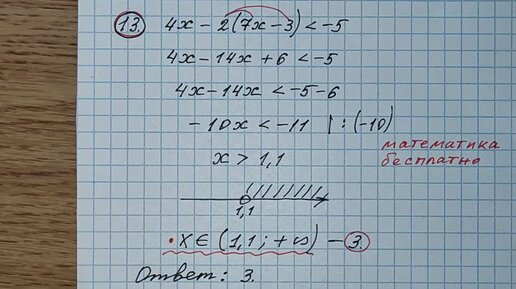 13. 4x - 2(7x - 3) < -5
4x - 14x + 6 < -5
4x - 14x < -5 - 6
-10x < -11 | : (-10)
математика
бесплатно
x > 1,1
1,1
• x ∈ (1,1; +∞) - 3.
Ответ: 3.